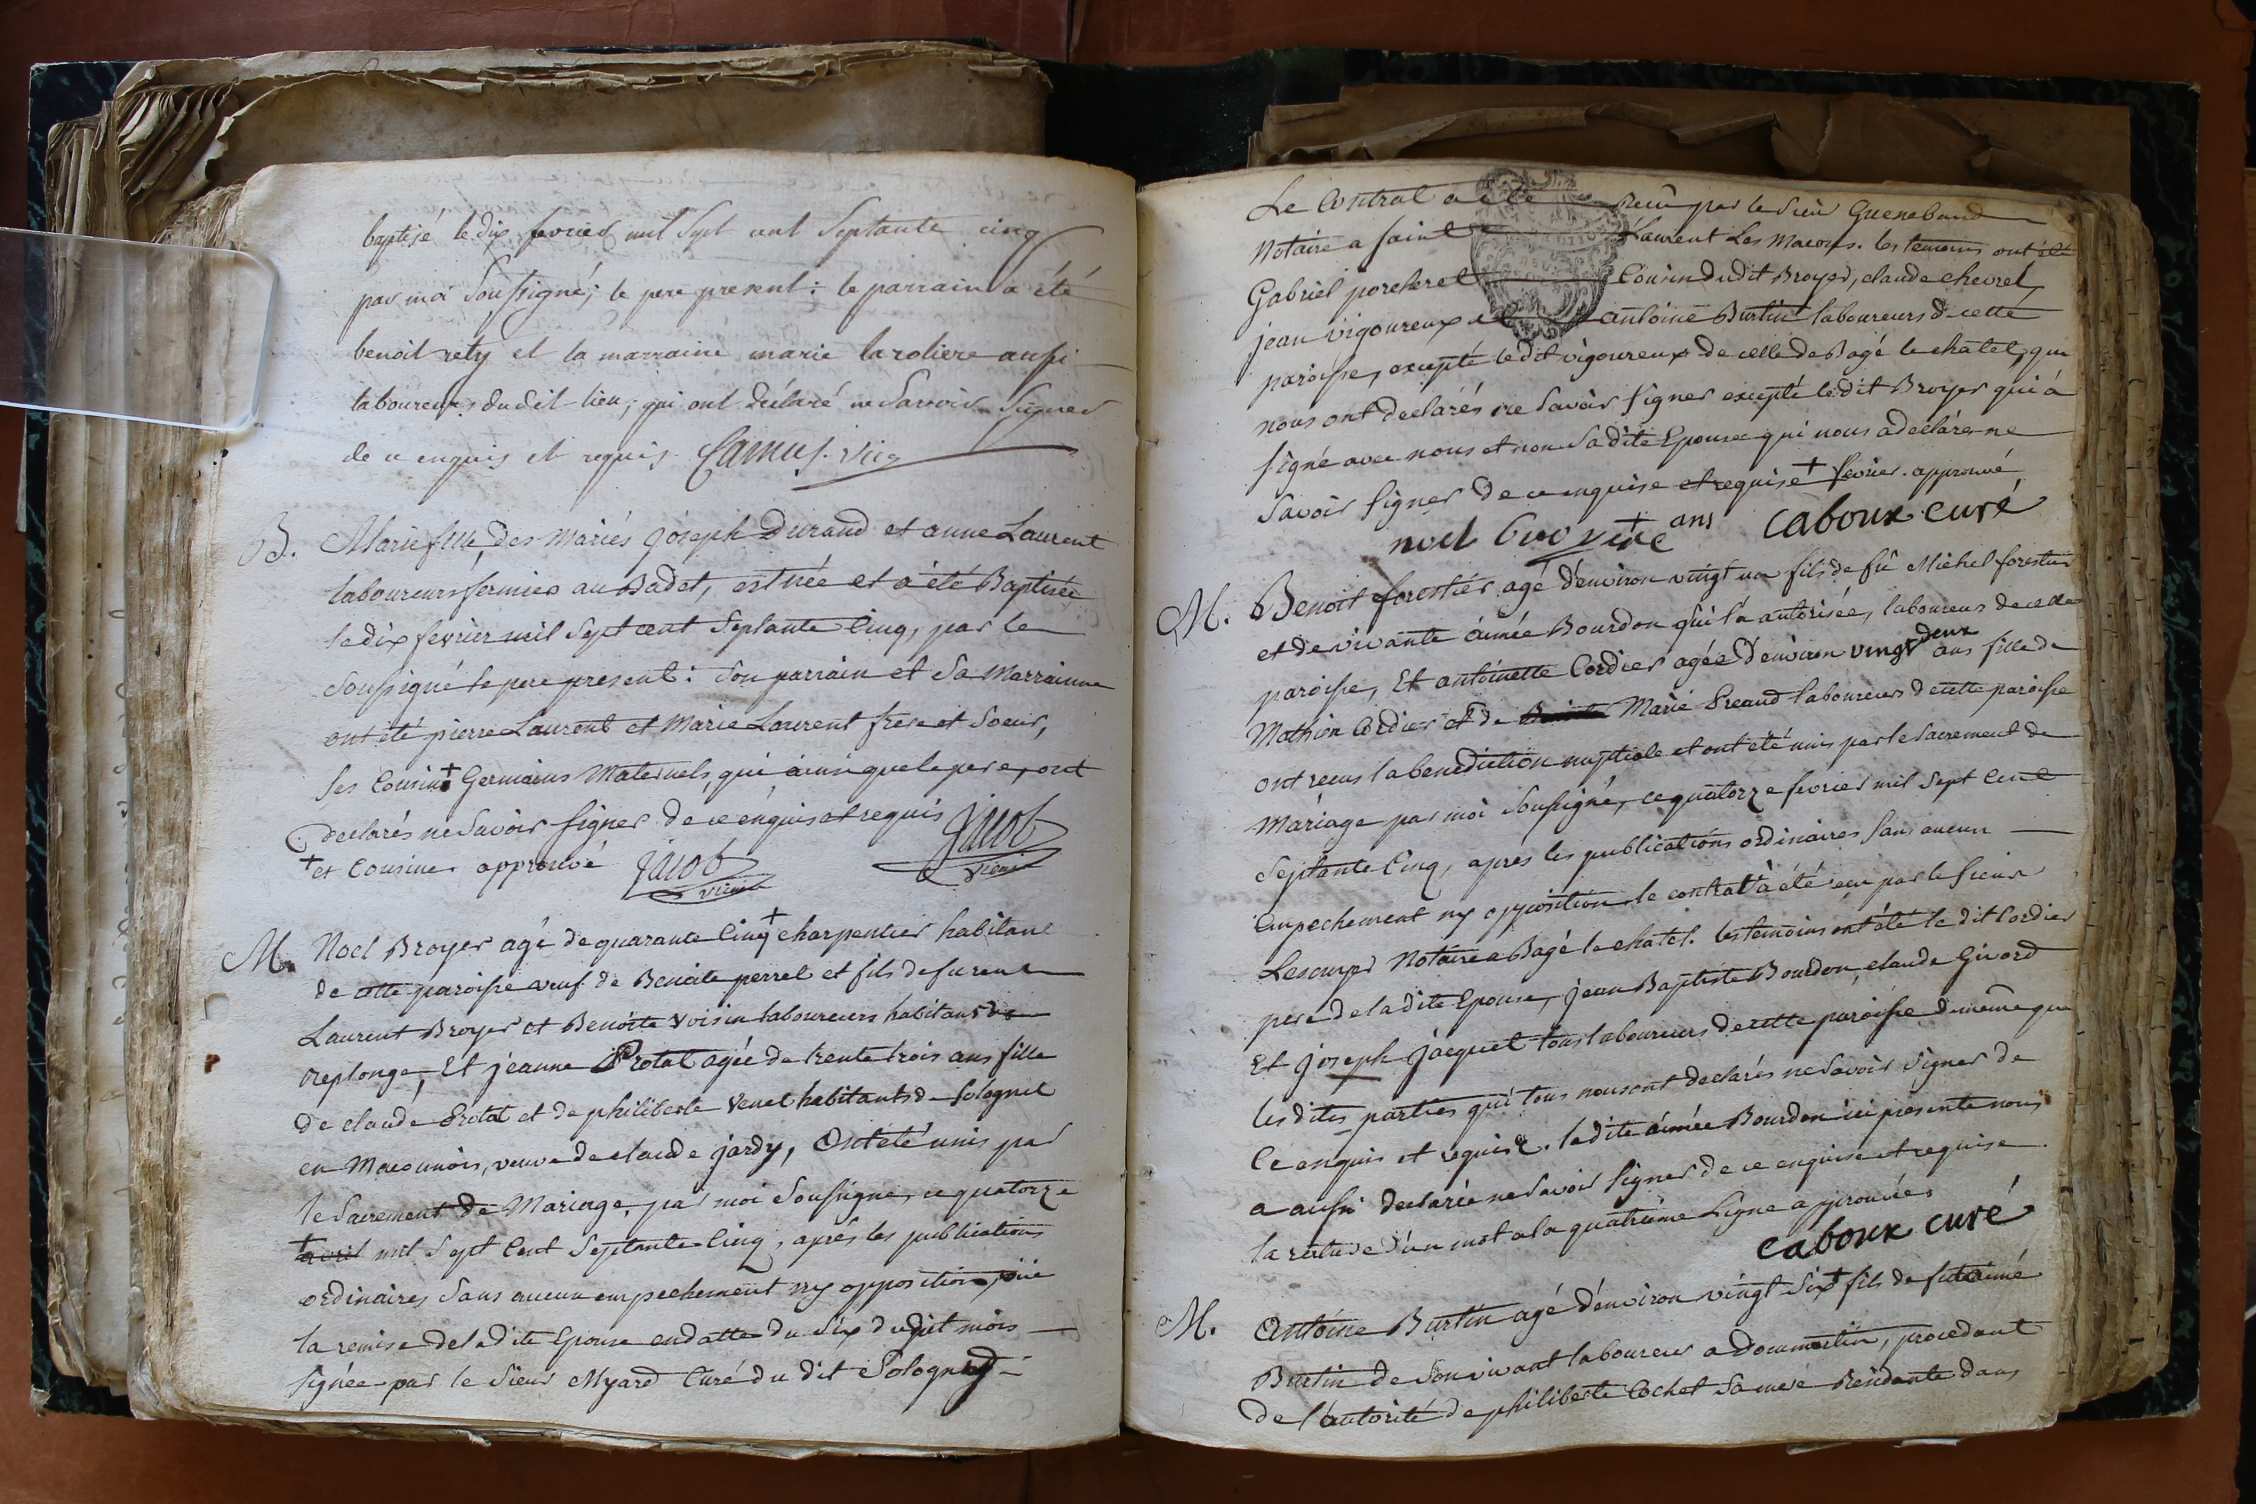 baptisé le dix fevrier mil Sept cent Septante cinq
par moi Soussigné; le pere present: le parrain a été
benoit rety et la marraine marie laroliere aussi
laboureurs dudit-lieu; qui ont déclaré ne Savoir Signer
de ce enquis et requis. Camus. vic
B. Marie fille des Mariés joseph Durand et anne Laurent
laboureurs fermier au Badet, est née et a été Baptisée
le dix fevrier mil Sept cent Septante Cinq, par le
Soussigné le pere present: Son parrain et Sa Marrainne
ont été pierre Laurent et Marie Laurent frere et Soeur,
Ses Cousins + Germains Maternels, qui ainsi que le pere, ont
declarés ne Savoir signer de ce enquis et requis Jacob
+ et Cousine approuvé Jacob vicaire
vicaire
M. Noel Broyer agé de quarante Cinq + charpentier habitant
de cette paroisse veuf de Benoite perret et fils de furent
Laurent Broyer et Benoite voisin laboureurs habitans de
replonge, Et jeanne Protat agée de trente trois ans fille
de claude Protat et de philiberte Venet habitants de Sologniet
en Maconnois, veuve de claude jardy, Ont été unis par
le Sacrement de Mariage, par moi Soussigné, ce quatorze
+ avril mil Sept Cent Septante Cinq, aprés les publications
ordinaires Sans aucun empechement ny opposition, vüe
la remise de la dite Epouse en datte du Six du dit mois
signée par le Sieur Myard Curé du dit Sologny
Le Contrat a été Recu par le Sieur Guenebaud
Notaire a Saint Laurent Les Macons. les temoins ont été
Gabriel porcheret Cousin dudit Broyer, claude chevret,
jean vigoureux et antoine Burtin laboureurs de cette
paroisse, excepté ledit vigoureux de celle de Bagé le chatel, qui
nous ont declarés ne Savoir signer excepté ledit Broyer qui á
signé avec nous et non Sa dite Epouse qui nous a declarés ne
Savoir signer de ce enquise et requise + fevrier. approuvé
noel Broyer + ans Caboux curé
M. Benoit forestier agé d'environ vingt un fils de fû Michel forestier
et de vivante aimée Bourdon qui l'a autorisée, laboureur de cette
paroisse, Et antoinette Cordier agée d'environ vingt deux ans fille de
Mathieu Cordier et de Marie Preaud laboureurs de cette paroisse
ont recus la benediction nuptiale et ont été unis par le Sacrement de
Mariage par moi Soussigné, ce quatorze fevrier mil Sept Cent
Septante Cinq, aprés les publications ordinaires Sans aucun
Empechement ny opposition. le contrat à été recu par le Sieur
Notaire a Bagé le chatel. les temoins ont été le dit Cordier
pere de la dite Epouse, jean Baptiste Bourdon, claude Givord
Et joseph jacquet tous laboureurs de cette paroisse de même que
les dites parties qui tous nous ont declarés ne Savoir signer de
Ce enquis et requis. la dite aimée Bourdon ici presente nous
a aussi declarée ne Savoir signer de ce enquise et requise.
la rature d'un mot a la quatrième Ligne approuvée
Caboux curé
M. Antoine Burtin agé d'environ vingt Six + fils de fut aimé
Burtin de Son vivant laboureur a Dommartin, procedant
de l'autorité de philiberte Cochet Sa mere Residante dans